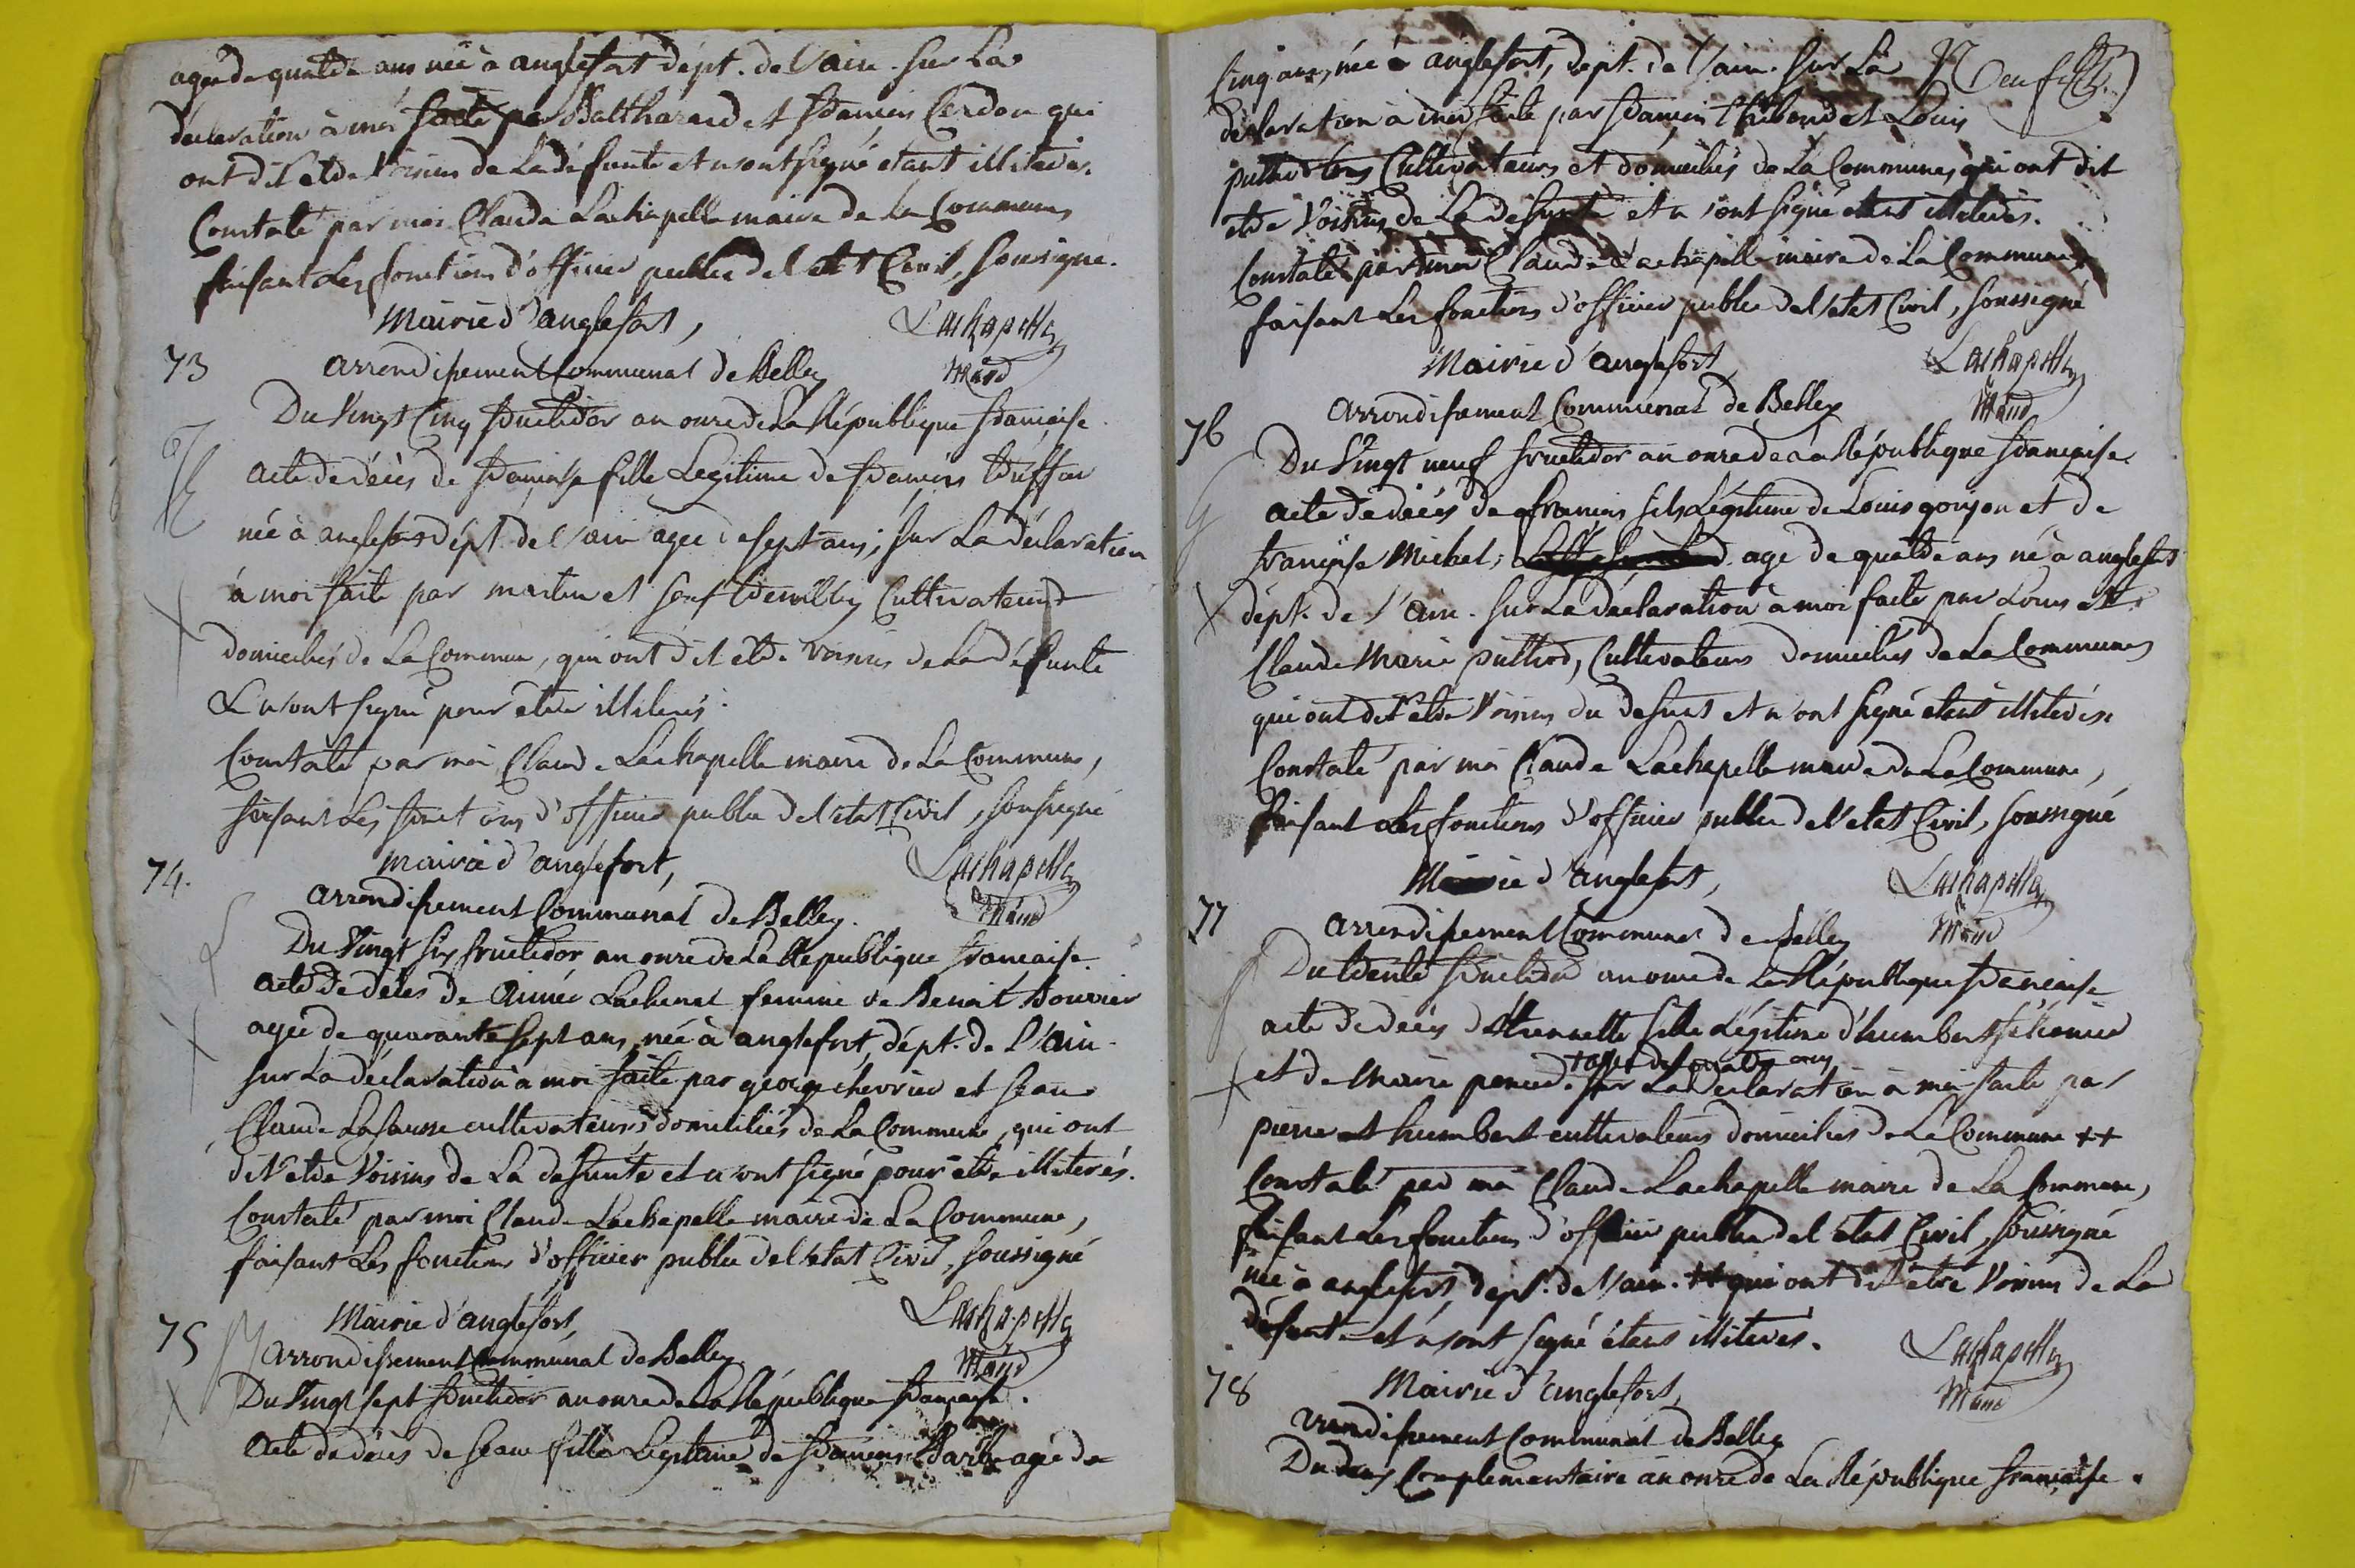 agée de quatre ans née à anglefort dépt. de l'ain. sur La
déclaration à moi faite par Balthazard et francois Cerdon qui
ont dit etre Voisins de La défunte et n'ont signé etant illiterés.
Constaté par moi Claude Lachapelle maire de La Commune,
faisant Les fonctions d'officier public de l'etat Civil, soussigné.
Mairie d'anglefort, Lachapelle
73 arrondissement Communal de Belley Maire
Du Vingt Cinq fructidor an onze de La République francaise
acte de décès de francoise fille Legitime de francois
née à anglefort dépt. de l'ain agée de sept ans; sur La déclaration
à moi faite par martin et Cultivateurs
domiciliés de La Commune, qui ont dit etre voisins de La défunte
& n'ont signé pour etre illiterés.
Constaté par moi Claude Lachapelle maire de La Commune,
faisant Les fonctions d'officier public de l'etat Civil, soussigné
Mairie d'anglefort, Lachapelle
74. arrondissement Communal de Belley. Maire
Du Vingt six fructidor an onze de La République francaise.
acte de décès de Aimée Lachenal femme de Benoit Bouvier
agée de quarante sept ans, née à anglefort, dépt. de l'ain.
sur La déclaration à moi faite par george chevrier et Jean
Claude Lafausse cultivateurs domiciliés de La Commune, qui ont
dit etre Voisins de La defunte et n'ont signé pour etre illiterés.
Constaté par moi Claude Lachapelle maire de La Commune,
faisant Les fonctions d'officier public de l'etat Civil, soussigné
Mairie d'anglefort, Lachapelle
75 arrondissement Communal de Belley Maire
Du Vingt sept fructidor an onze de La République francaise.
Acte de décès de Jeane fille Legitime de francois agée de
Cinq ans, née à anglefort, dépt. de l'ain. sur La
déclaration à moi faite par francois Thiboud et Louis
Cultivateurs et domiciliés de La Commune, qui ont dit
etre Voisins de La defunte et n'ont signé etant illiterés.
Constaté par moi Claude Lachapelle maire de La Commune,
faisant Les fonctions d'officier public de l'etat Civil, soussigné
Mairie d'anglefort, Lachapelle
76 arrondissement Communal de Belley Maire
Du Vingt neuf fructidor an onze de La République francaise.
acte de décès de francois fils Légitime de Louis goujon et de
francoise Michel; agé de quatre ans né à anglefort
dépt. de l'ain. sur La déclaration à moi faite par Louis et
Claude Marie puthod, Cultivateurs domiciliés de La Commune,
qui ont dit etre Voisins du defunt et n'ont signé etant illiterés.
Constaté par moi Claude Lachapelle maire de La Commune,
faisant Les fonctions d'officier public de l'etat Civil, soussigné
Mairie d'anglefort, Lachapelle
77 arrondissement Communal de Belley Maire
Du trente fructidor an onze de La République francaise
acte de décès d'Etiennette fille Légitime d'humbert
+ agée de quatre ans
et de Marie sur La Declaration à moi faite par
pierre et humbert cultivateurs domiciliés de La Commune ++
Constaté par moi Claude Lachapelle maire de La Commune,
faisant Les fonctions d'officier public de l'etat Civil, soussigné
née à anglefort, dépt. de l'ain. ++ qui ont dit etre Voisins de La
défunte et n'ont signé etant illiterés. Lachapelle
78 Mairie d'anglefort, Maire
arrondissement Communal de Belley
Du deux Complementaire an onze de La République francaise.